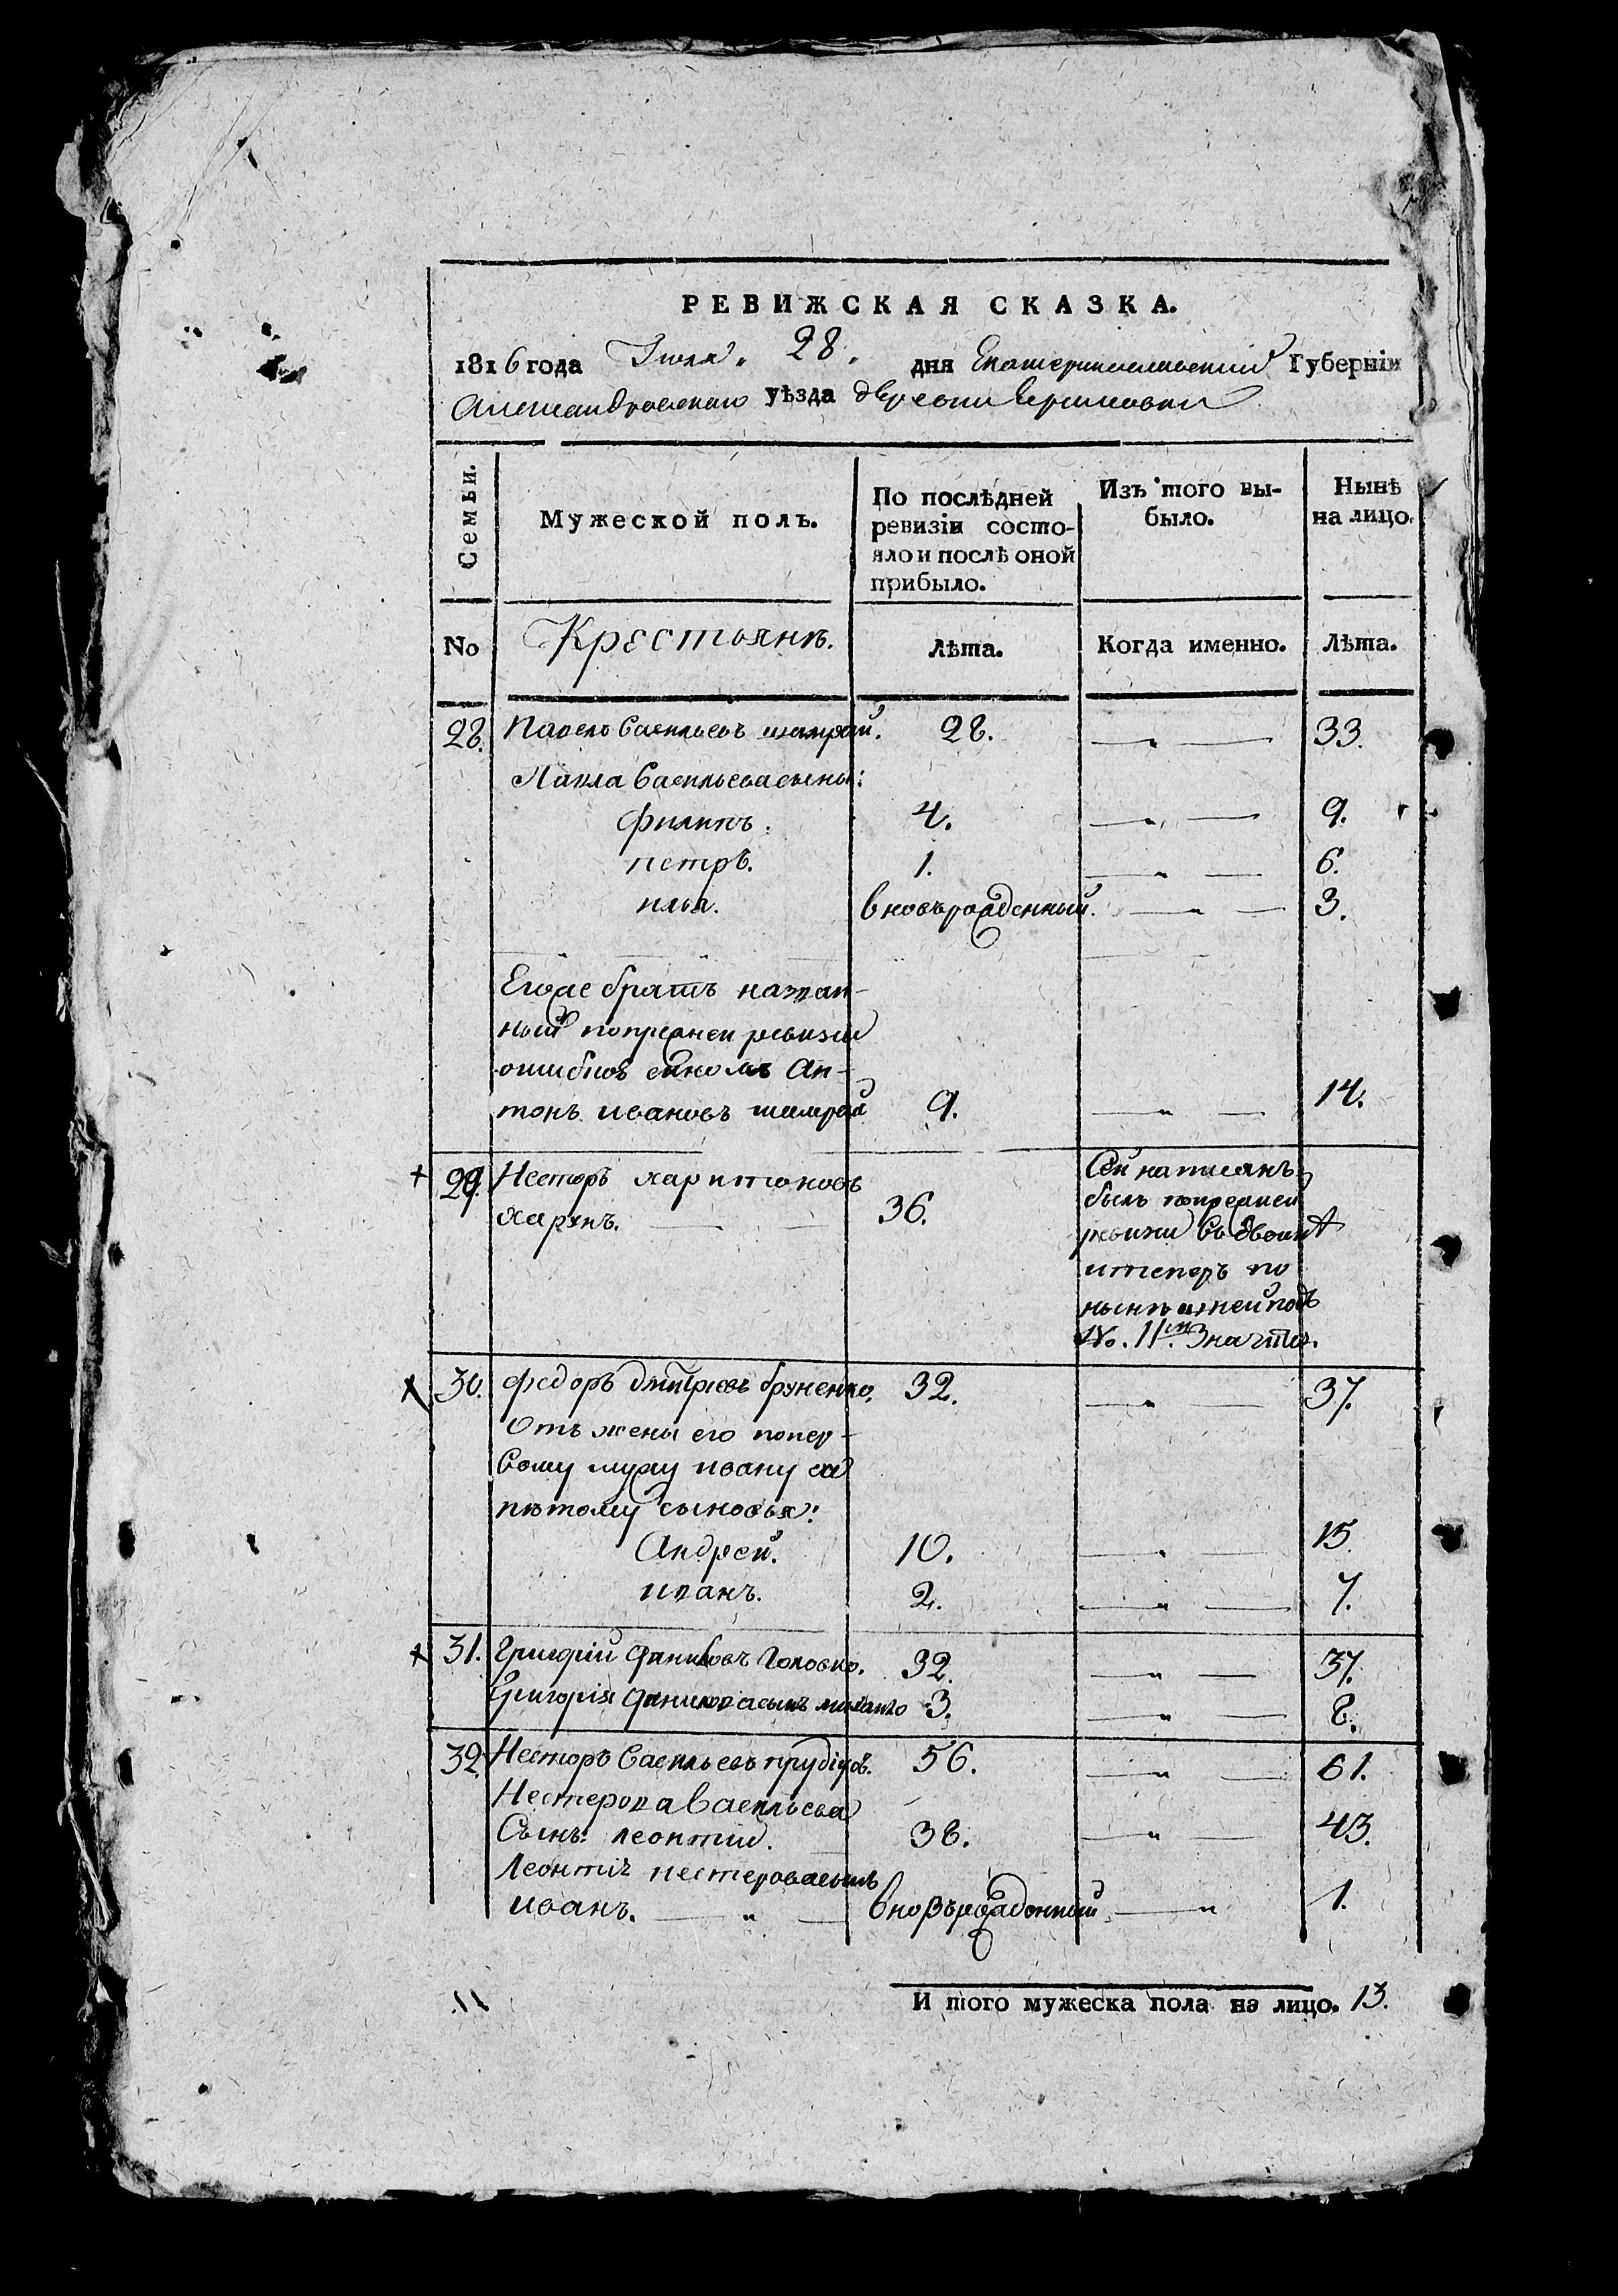 РЕВИЖСКАЯ СКАЗКА.
1816 года Iюля. 28. дня Екатеринославской Губернiи
Александровскаго уѣзда деревни
Семьи.
Мужеской полъ.
По послѣдней ревизiи состо-
яло и послѣ оной
прибыло.
Изъ того вы-
было.
Нынѣ
на лицо.
No Крестьянѣ. Лѣта. Когда именно. Лѣта.
28. Павелъ Васильевъ шамрай. 28. — „ — 33.
Павла Васильева сыны:
филипъ. 4. — „ — 9.
петръ. 1. — „ — 6.
илья. вновьрожденный. — „ — 3.
Егоже братъ назван-
ный попрежней ревизiи
ошибкою сыномъ Ан-
тонъ ивановъ шамрай 9. — „ — 14.
+ 29. Несторъ харитоновъ
36.
Сей написанъ
былъ попрежней
ревизiи вдвойнѣ
итеперь по
нынешней подъ
No. 11м. значится.
х 30. федоръ дмитрiевъ бруненко. 32. — „ — 37.
Отъ жены его попер-
вому мужу ивану
сыновья:
Андрей. 10. — „ — 15.
иванъ. 2. — „ — 7.
х 31. Григорiй Головко. 32. — „ — 37.
Григорiя сынъ 3. — „ — 8.
32. Несторъ Васильевъ 56. — „ — 61.
Нестера Васильева
Сынъ: леонтий. 38. — „ — 43.
Леонтия нестерова сынъ
иванъ. — „ — вновьрожденный — „ 1.
И того мужеска пола на лицо. 13.